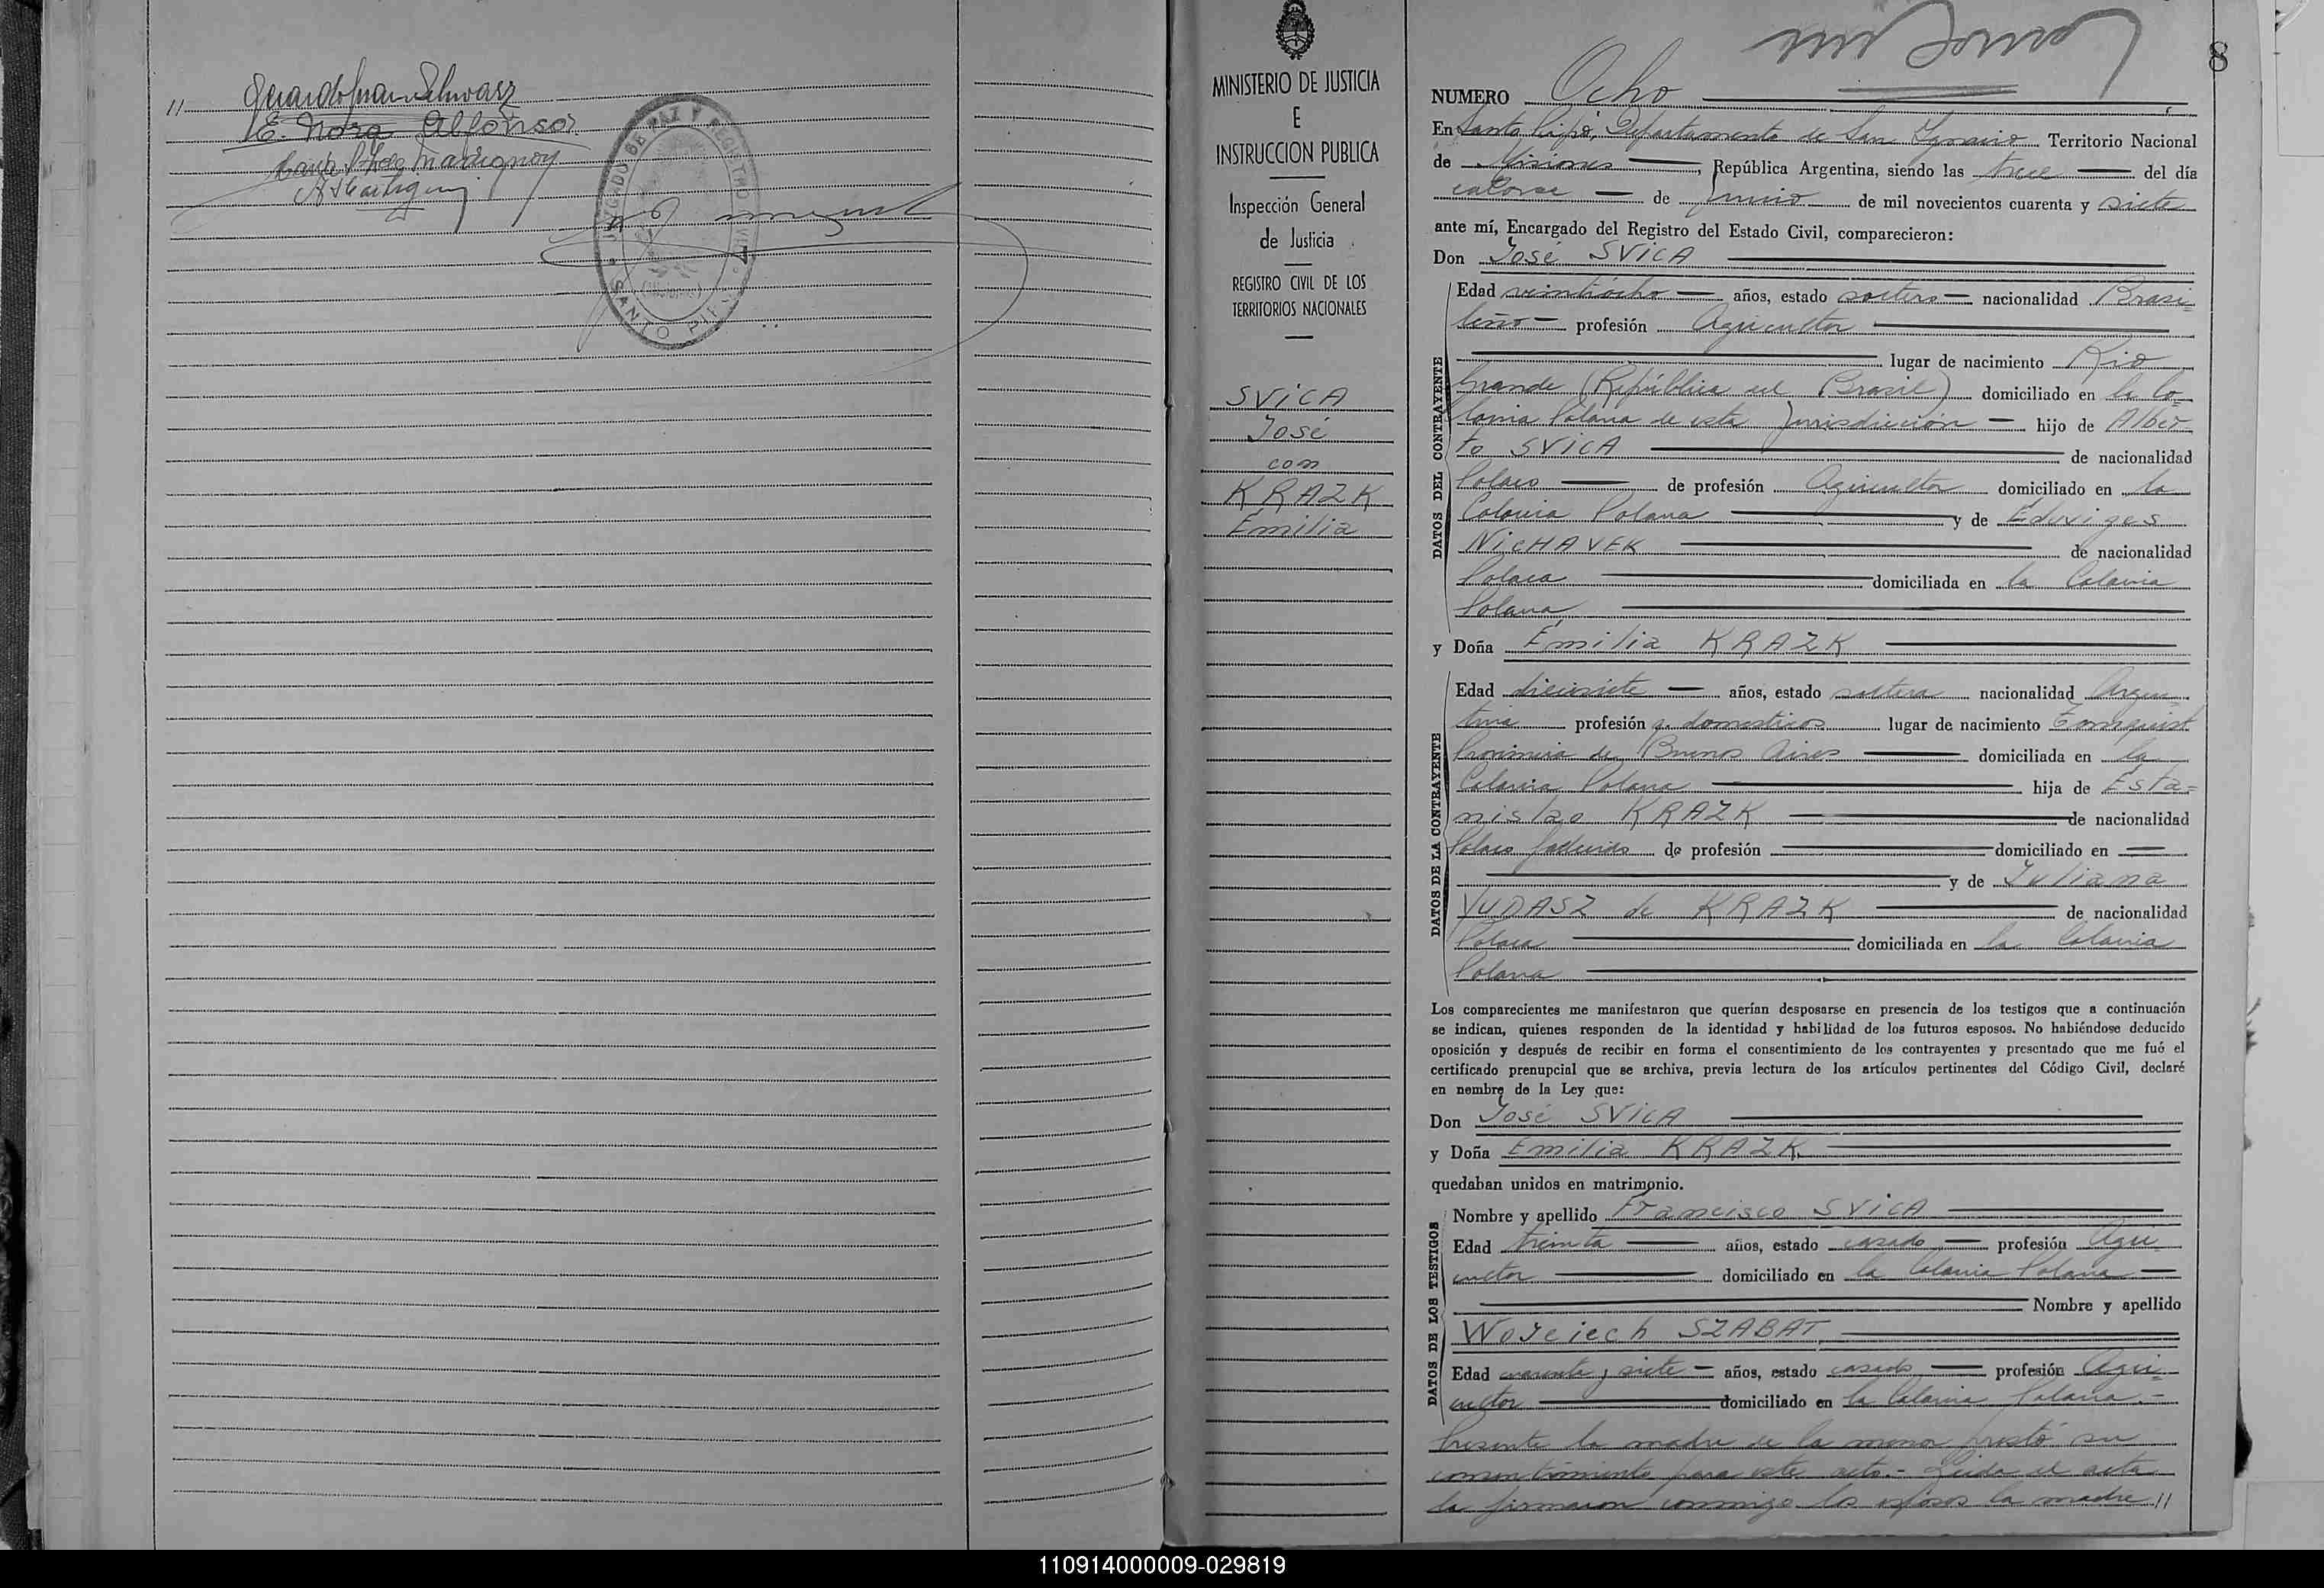 11
E. Nora Alfonso
JUZGADO DE PAZ Y REGISTRO CIVIL
SANTO PIPÓ
MINISTERIO DE JUSTICIA
E
INSTRUCCION PUBLICA
Inspección General
de Justicia
REGISTRO CIVIL DE LOS
TERRITORIOS NACIONALES
SVICA
José
con
KRAZK
Emilia
8
NUMERO Ocho
En Santo Pipó, Departamento de San Ignacio Territorio Nacional
de Misiones, República Argentina, siendo las trece del día
catorce de Junio de mil novecientos cuarenta y siete
ante mí, Encargado del Registro del Estado Civil, comparecieron:
Don José SVICA
DATOS DEL CONTRAYENTE
Edad veintiocho años, estado soltero nacionalidad Brasi
leño profesión Agricultor
lugar de nacimiento Rio
Grande (República del Brasil) domiciliado en la Co
lonia Polana de esta Jurisdicción hijo de Alber
to SVICA de nacionalidad
Polaco de profesión Agricultor domiciliado en la
Colonia Polana y de Eduviges
NICHAVEK de nacionalidad
Polaca domiciliada en la Colonia
Polana
y Doña Emilia KRAZK
DATOS DE LA CONTRAYENTE
Edad diecisiete años, estado soltera nacionalidad Argen
tina profesión q. domesticos lugar de nacimiento Tornquist
Provincia de Buenos Aires domiciliada en la
Colonia Polana hija de Esta=
nislao KRAZK de nacionalidad
Polaco fallecido de profesión domiciliado en
y de Juliana
YUDASZ de KRAZK de nacionalidad
Polaca domiciliada en la Colonia
Polana
Los comparecientes me manifestaron que querían desposarse en presencia de los testigos que a continuación
se indican, quienes responden de la identidad y habilidad de los futuros esposos. No habiéndose deducido
oposición y después de recibir en forma el consentimiento de los contrayentes y presentado que me fué el
certificado prenupcial que se archiva, previa lectura de los artículos pertinentes del Código Civil, declaré
en nombre de la Ley que:
Don José SVICA
y Doña Emilia KRAZK
quedaban unidos en matrimonio.
DATOS DE LOS TESTIGOS
Nombre y apellido Francisco SVICA
Edad treinta años, estado casado profesión Agri
cultor domiciliado en la Colonia Polana
Nombre y apellido
Wojciech SZABAT
Edad cuarenta y siete años, estado casado profesión Agri
cultor domiciliado en la Colonia Polana.-
Presente la madre de la menor prestó su
consentimiento para este acto.- Leida el acta
la firmaron conmigo los esposos la madre //
110914000009-029819